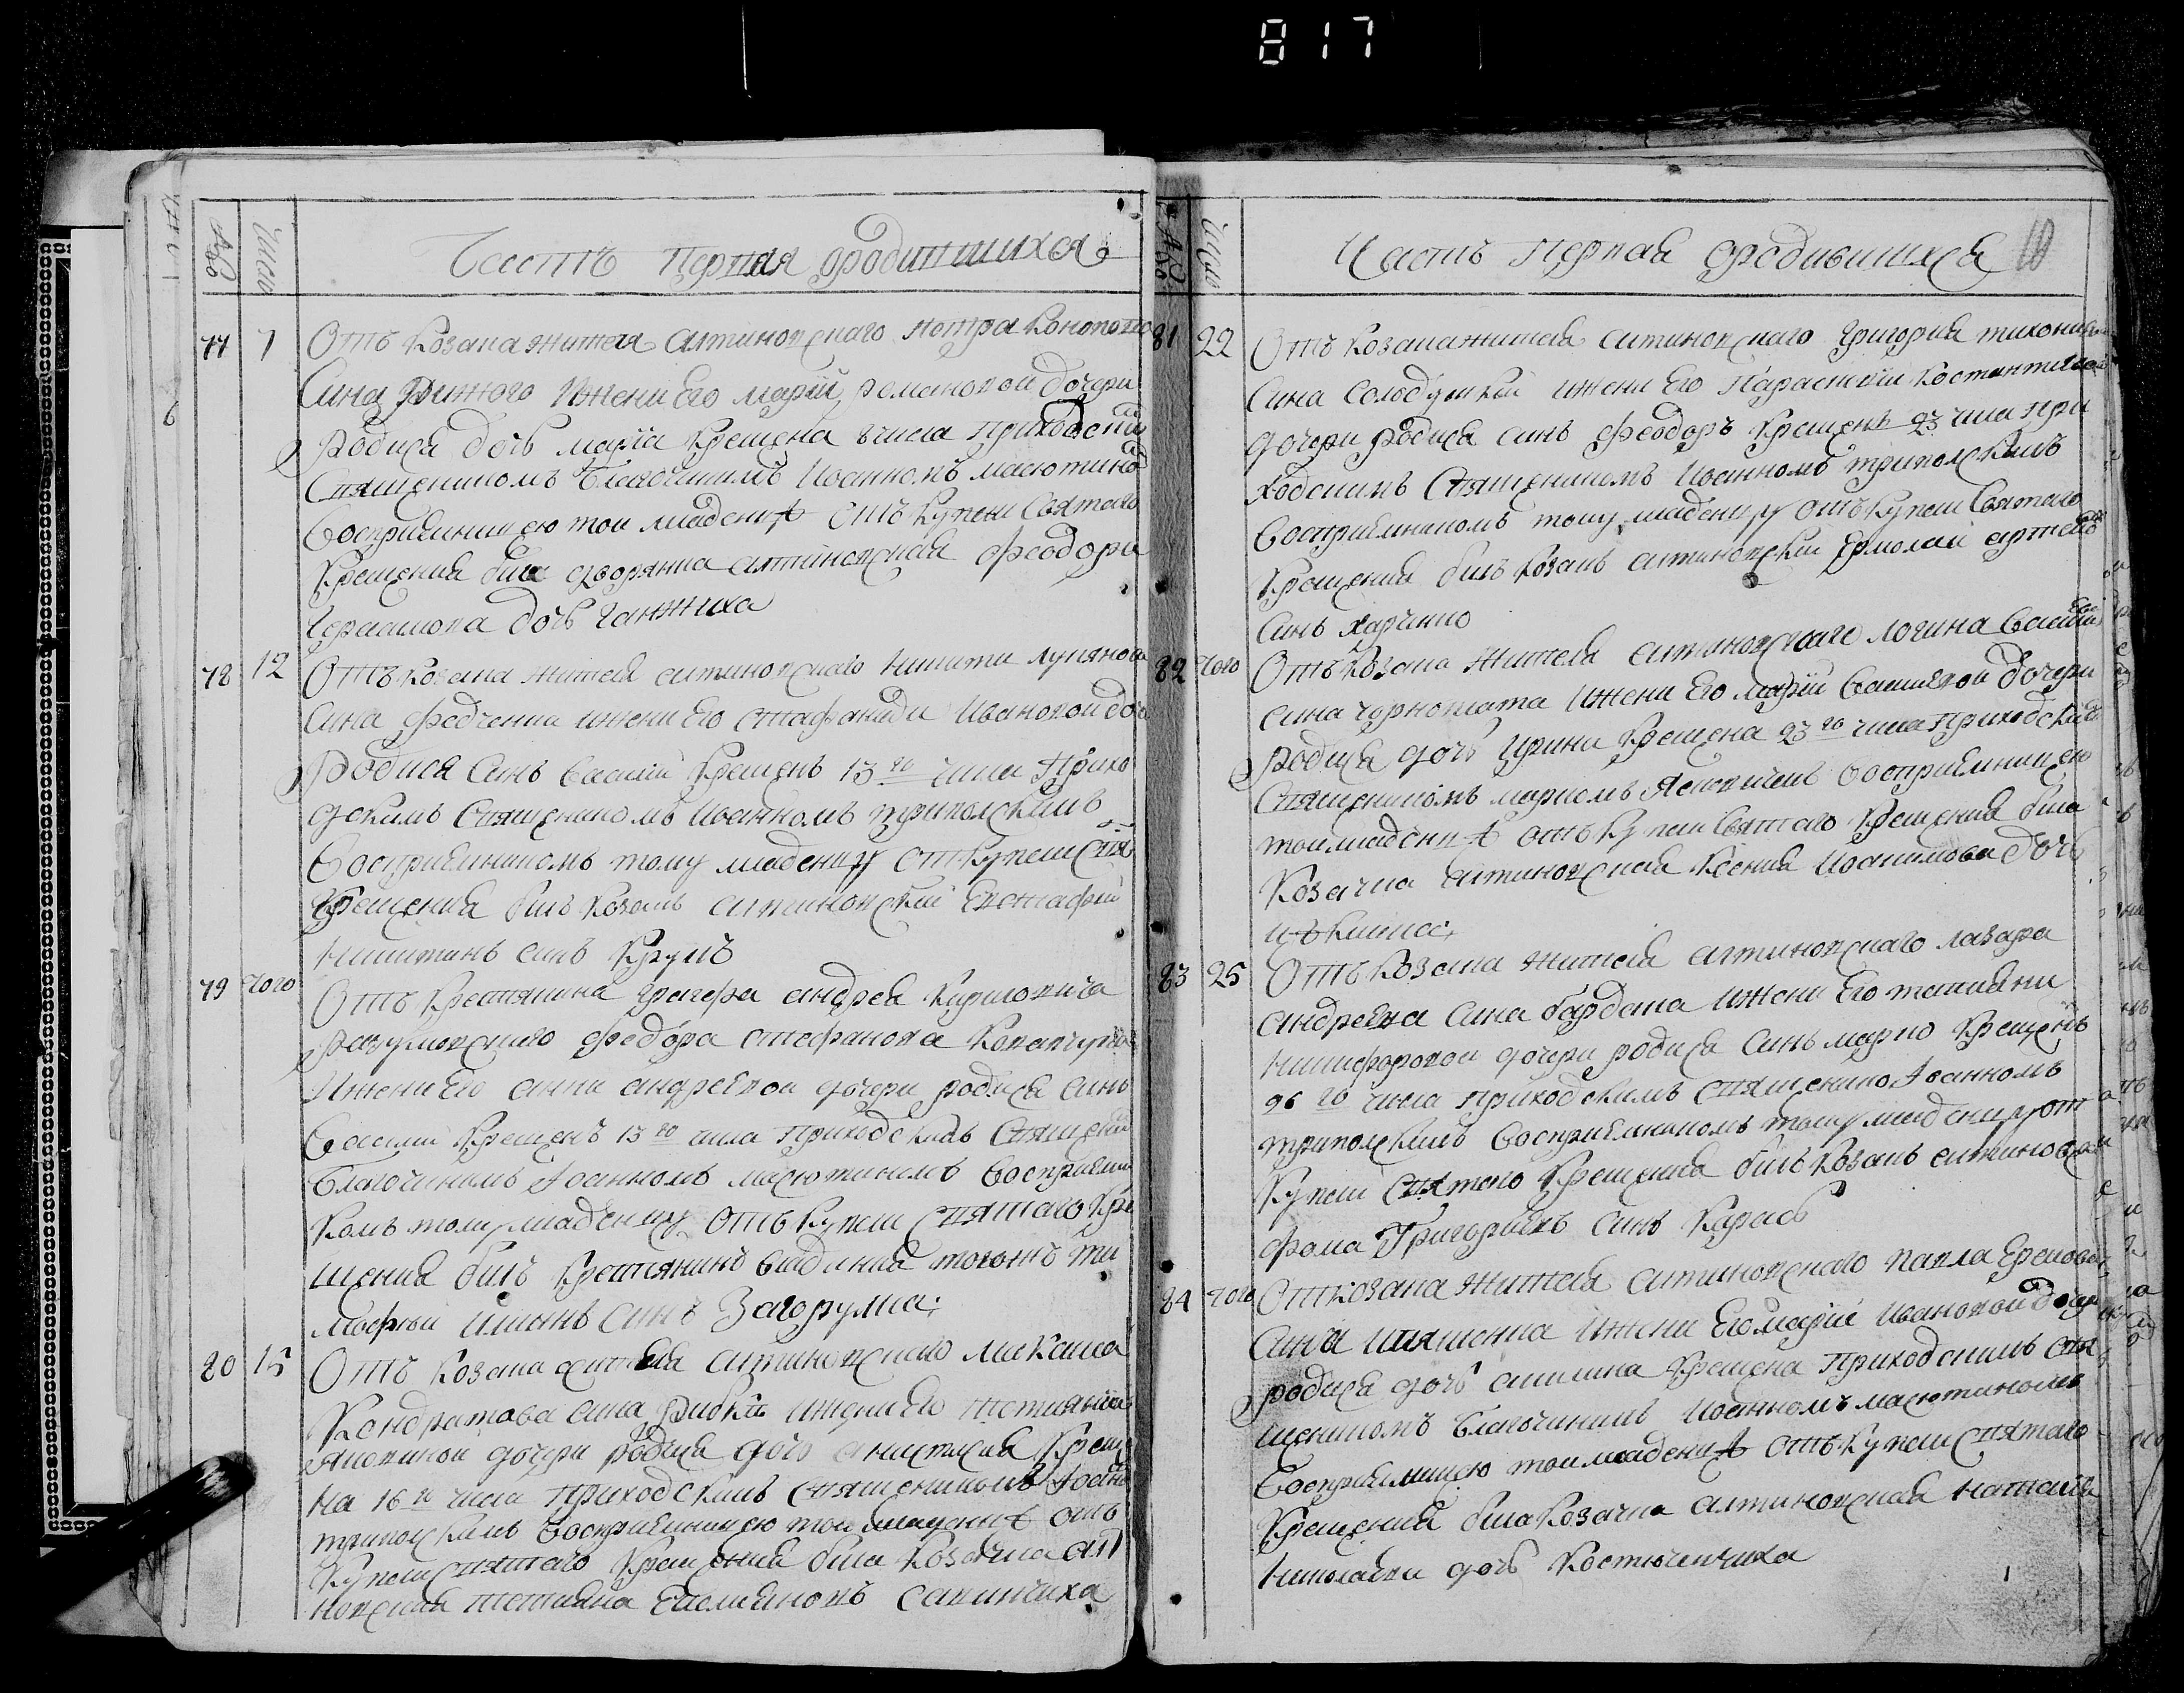 817
Число
Часть первая ородившихся
77 7 Отъ козака жителя алтиновскаго петра
Сина Рижого ижени Его марїи романовой дочери
Родися дочь марїа крещена числа приходским
Священикомъ благочинимъ Иоанномъ масютиним
Восприемницею той младенцѣ отъ купели святаго
Крещения била дворянка алтиновская феодора
дочь ганжиха
78 12 Отъ козака жителя алтиновскаго никити лукянова
Сина федченка ижени его стефаниди Ивановой доч
Родися синъ василий крещенъ 13 го числа прихо
дскимъ священикомъ Иоанномъ триполскимъ
Восприемникомъ тому младенцу от купели свя
крещения билъ козакъ алтиновский Евстафий
никитинъ синъ Кугукъ
79 того Отъ крестянина графа андрея кириловича
Разумовского федора стефанова
Ижени его анни андреевой дочери родися синъ
Василий крещенъ 13 го числа приходскимъ священи
благочинимъ Иоанномъ масютинимъ восприемни
комъ тому младенцу отъ купели святаго кре
щения билъ крестянинъ владения тогожъ ти
мофей илиинъ синъ Загорулка
80 15 Отъ козака жителя алтиновскаго
Кондратова сина Рибки ижени его тетияни
дочери родися дочь анистасия креще
на 16 го числа приходскимъ священикомъ Иоанно
триполскимъ восприемницею той младенцѣ отъ
купели святаго крещения била козачка алт
новская тетияна Емелиановъ савинчиха
Число
Часть первая ородившихся 10
81 22 Отъ козака жителя алтиновскаго григория
Сина солодушки ижени его параскеви костянтиновой
дочери родися синъ феодоръ крещенъ 23 числа при
ходскимъ священикомъ Иоанномъ триполскимъ
восприемникомъ тому младенцу отъ купели святаго
крещения билъ козакъ алтиновский ермолай артемов
синъ харчинко
82 того Отъ козака жителя алтиновскаго логина василиева
сина чорномата ижени его марїи василиевой дочери
родися дочь ирина крещена 23 го числа приходским
священикомъ маркомъ восприемницею
той младенцѣ отъ купели святаго крещения била
козачка алтиновская ксения Иоакимова дочь
83 25 Отъ козака жителя алтиновскаго лазара
андреева сина бардака ижени его татияни
никифоровой дочери родися синъ марко крещенъ
26 го числа приходскимъ священико Иоанномъ
триполскимъ восприемникомъ тому младенцу от
купели святаго крещения билъ козакъ алтиновский
фома григориевъ синъ карась
84 того Отъ козака жителя алтиновскаго павла
сина ижени его марїи ивановой дочери
родися дочь акилина крещена приходскимъ свя
щеникомъ благочинимъ Иоанномъ масютиномъ
восприемницею той младенцѣ отъ купели святаго
крещения била козачка алтиновская наталия
николаева дочь костюченчиха